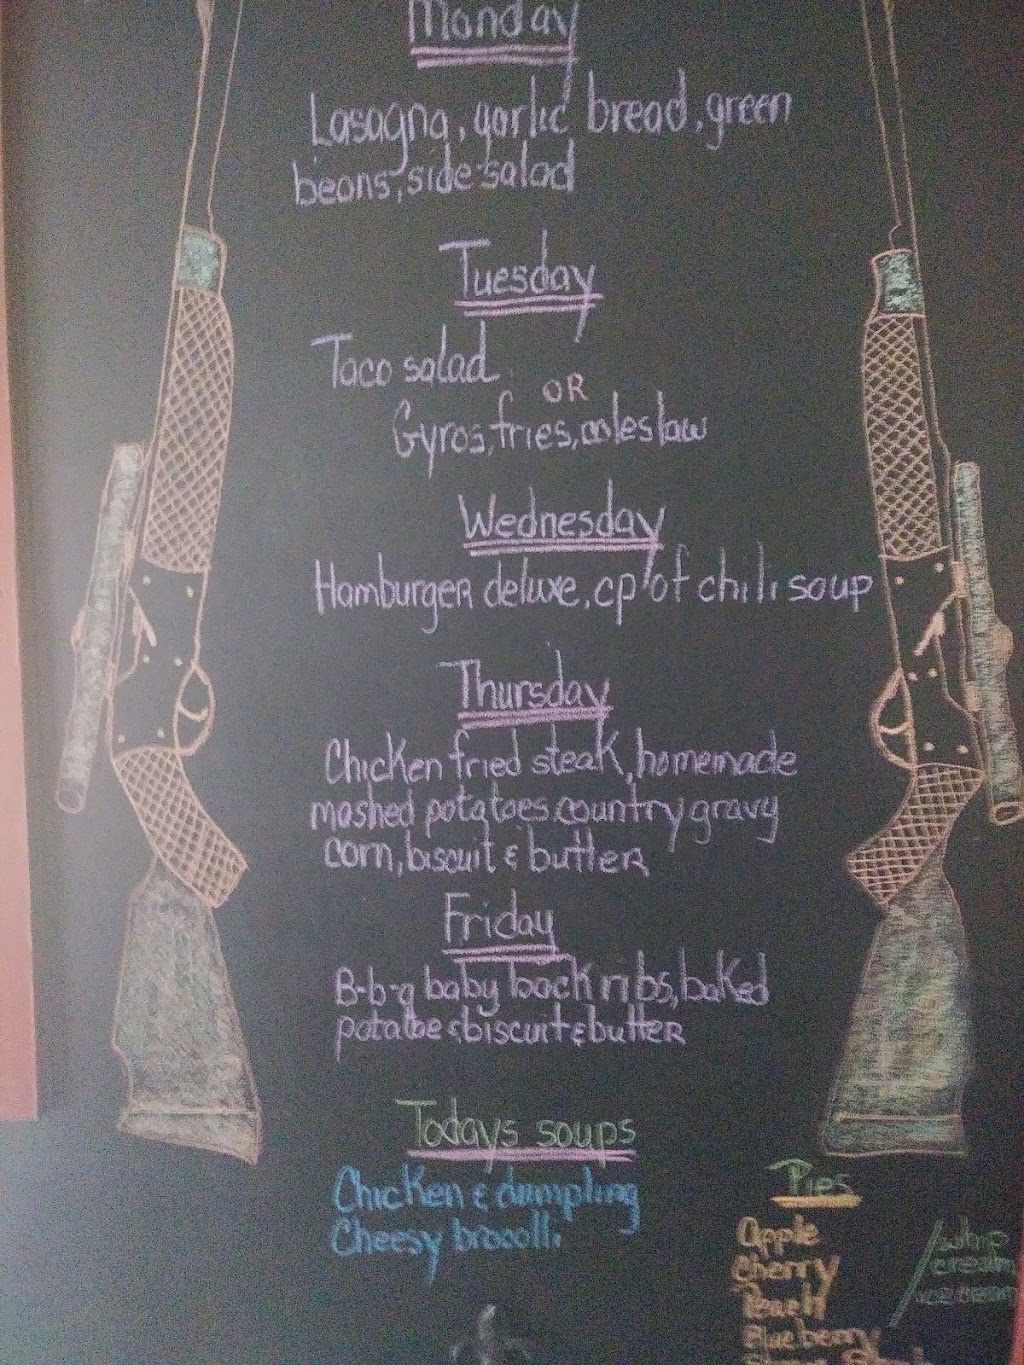 Monday
Lasagna, garlic bread, green
beans, side salad
Tuesday
Taco salad
OR
Gyros, fries, coleslaw
Wednesday
Hamburger deluxe, cp of chili soup
Thursday
Chicken fried steak, homemade
mashed potatoes, country gravy
corn, biscuit & butter
Friday
B-b-q baby back ribs, baked
potatoe & biscuit & butter
Todays soups
Chicken & dumpling
Cheesy broccolli
Pies
Apple
Cherry
Peach
Blueberry
cream
ice cream